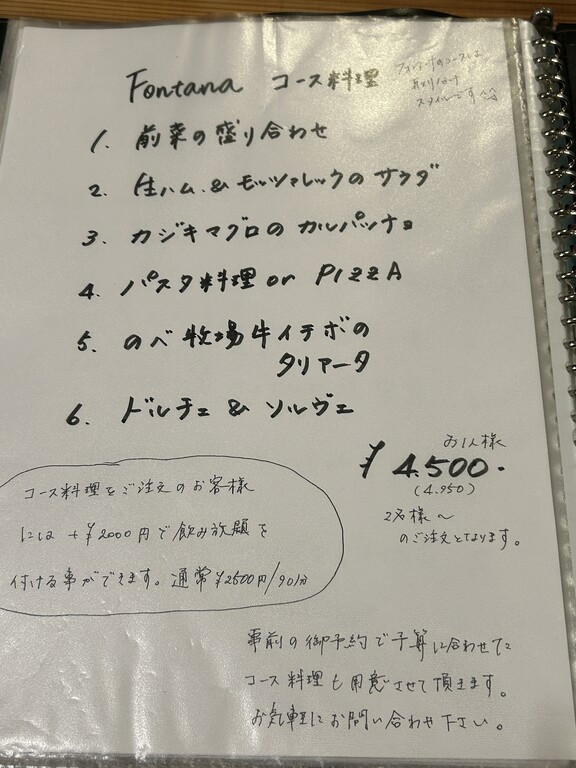 Fontana コース料理
フォンターナのコースは
取り分け
スタイルです
1. 前菜の盛り合わせ
2. 生ハム & モッツァレッラのサラダ
3. カジキマグロの カルパッチョ
4. パスタ料理 or PIZZA
5. のべ牧場牛イチボの
タリアータ
6. ドルチェ & ソルヴェ
お1人様
¥4.500.
(4.950)
2名様〜
のご注文となります。
コース料理をご注文のお客様
には +¥2000円で飲み放題を
付ける事ができます。通常¥2500円/90分
事前の御予約で予算に合わせた
コース料理も用意させて頂きます。
お気軽にお問い合わせ下さい。